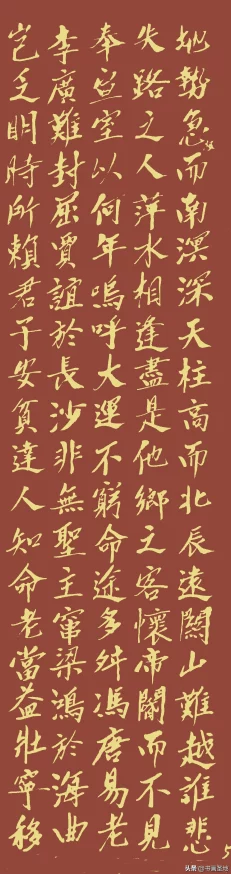 地勢急而南溟深天柱高而北辰遠關山難越誰悲
失路之人萍水相逢盡是他鄉之客懷帝閽而不見
奉宣室以何年嗚呼大運不窮命途多舛馮唐易老
李廣難封屈賈誼於長沙非無聖主竄梁鴻於海曲
豈乏明時所賴君子安貧達人知命老當益壯寧移
头条